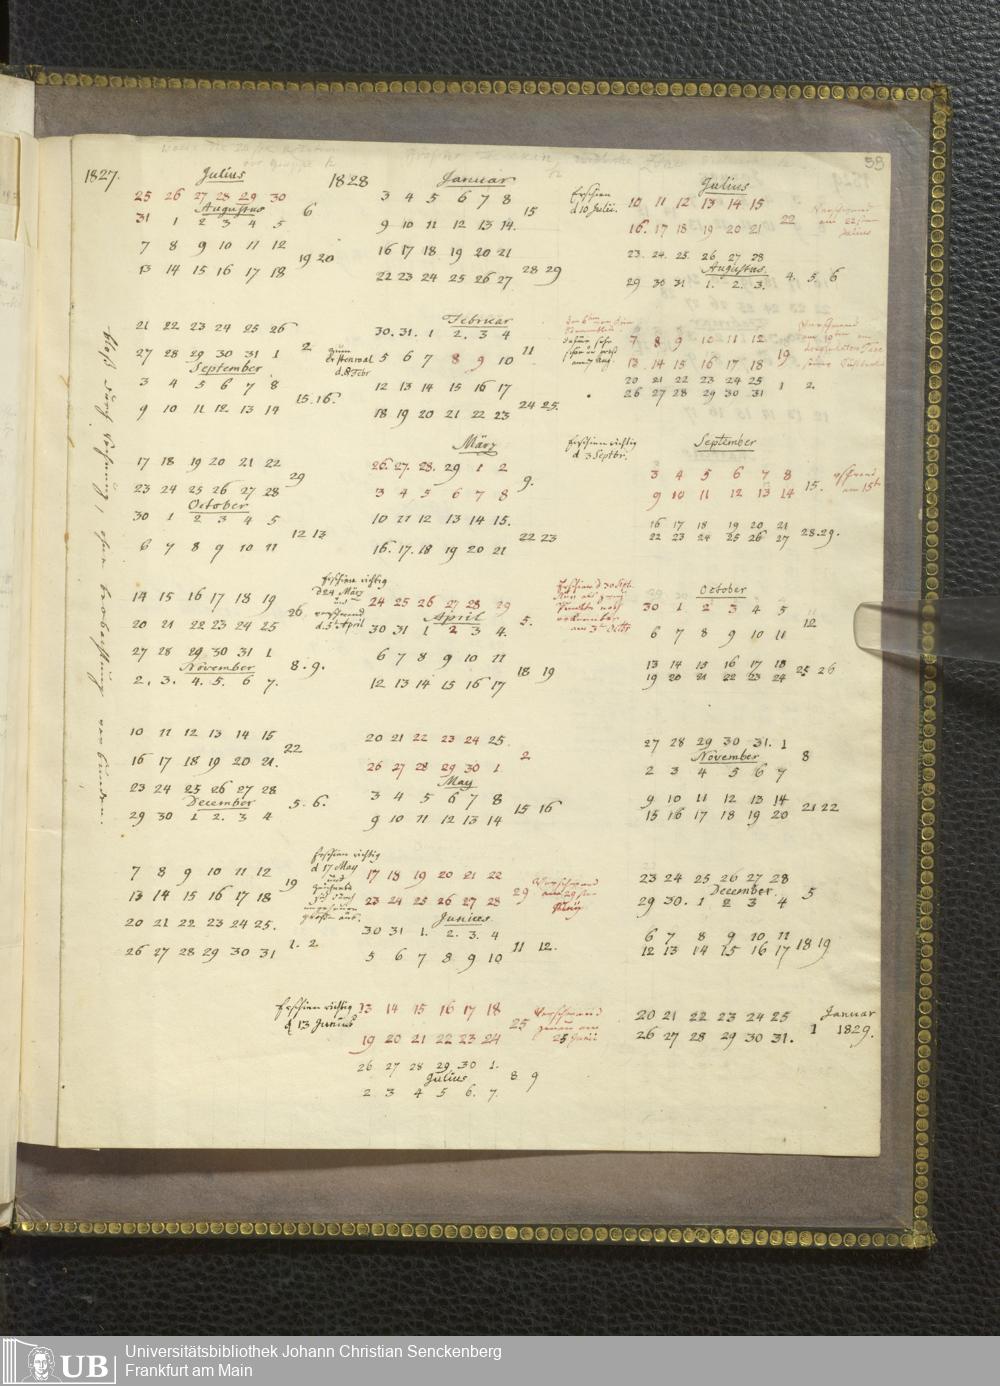 58
1827.
Julius
25 26 27 28 29 30
Augustus
6
31 1 2 3 4 5
7 8 9 10 11 12
19 20
13 14 15 16 17 18
21 22 23 24 25 26
2
27 28 29 30 31 1
September
3 4 5 6 7 8
15. 16.
9 10 11 12 13 14
17 18 19 20 21 22
29
23 24 25 26 27 28
October
30 1 2 3 4 5
12 13
6 7 8 9 10 11
14 15 16 17 18 19
26
20 21 22 23 24 25
27 28 29 30 31 1
November
8. 9.
2. 3. 4. 5. 6 7.
10 11 12 13 14 15
22
16 17 18 19 20 21.
23 24 25 26 27 28
December
5. 6.
29 30 1 2. 3 4
7 8 9 10 11 12
19
13 14 15 16 17 18
20 21 22 23 24 25.
1. 2
26 27 28 29 30 31
1828
Januar
3 4 5 6 7 8
15
9 10 11 12 13 14.
16 17 18 19 20 21
28 29
22 23 24 25 26 27
Februar
30. 31. 1 2. 3 4
11
zum
d. 8 Febr
5 6 7 8 9 10
12 13 14 15 16 17
24 25.
18 19 20 21 22 23
März
26. 27. 28. 29 1 2
9.
3 4 5 6 7 8
10 11 12 13 14 15.
22 23
16. 17. 18 19 20 21
Erschien richtig
d 24 März
und
verschwand
d. 5t April
24 25 26 27 28 29
April
5.
30 31 1 2 3 4.
6 7 8 9 10 11
18 19
12 13 14 15 16 17
20 21 22 23 24 25.
2
26 27 28 29 30 1
May
3 4 5 6 7 8
15 16
9 10 11 12 13 14
Erschien richtig
d 17 May
und
17 18 19 20 21 22
29
Verschwand
23 24 25 26 27 28
Junius
30 31 1. 2. 3. 4
11 12.
5 6 7 8 9 10
Erschien richtig
d 13 Junius
13 14 15 16 17 18
25
Verschwand
genau am
25 Junii
19 20 21 22 23 24
26 27 28 29 30 1.
Julius
8 9
2 3 4 5 6. 7.
Julius
Erschien
d 10 Julii.
10 11 12 13 14 15
22
Verschwand
am 22sten
Julius
16. 17 18 19 20 21
23. 24. 25. 26 27 28
Augustus.
4. 5. 6
29 30 31 1. 2. 3.
7 8 9 10 11 12
19
13 14 15 16 17 18
20 21 22 23 24 25
1 2.
26 27 28 29 30 31
Erschien richtig
d 3 Septbr.
September
3 4 5 6 7 8
15.
am 15t
9 10 11 12 13 14
16 17 18 19 20 21
28. 29.
22 23 24 25 26 27
Erschien d 30 Sept.
October
30 1 2 3 4 5
12
am 3t Octbr
6 7 8 9 10 11
13 14 15 16 17 18
25 26
19 20 21 22 23 24
27 28 29 30 31. 1
November
8
2 3 4 5 6 7
9 10 11 12 13 14
21 22
15 16 17 18 19 20
23 24 25 26 27 28
December
5
29 30. 1 2 3 4
6 7 8 9 10 11
18 19
12 13 14 15 16 17
20 21 22 23 24 25
Januar
1 1829.
26 27 28 29 30 31.
UB
Universitätsbibliothek Johann Christian Senckenberg
Frankfurt am Main